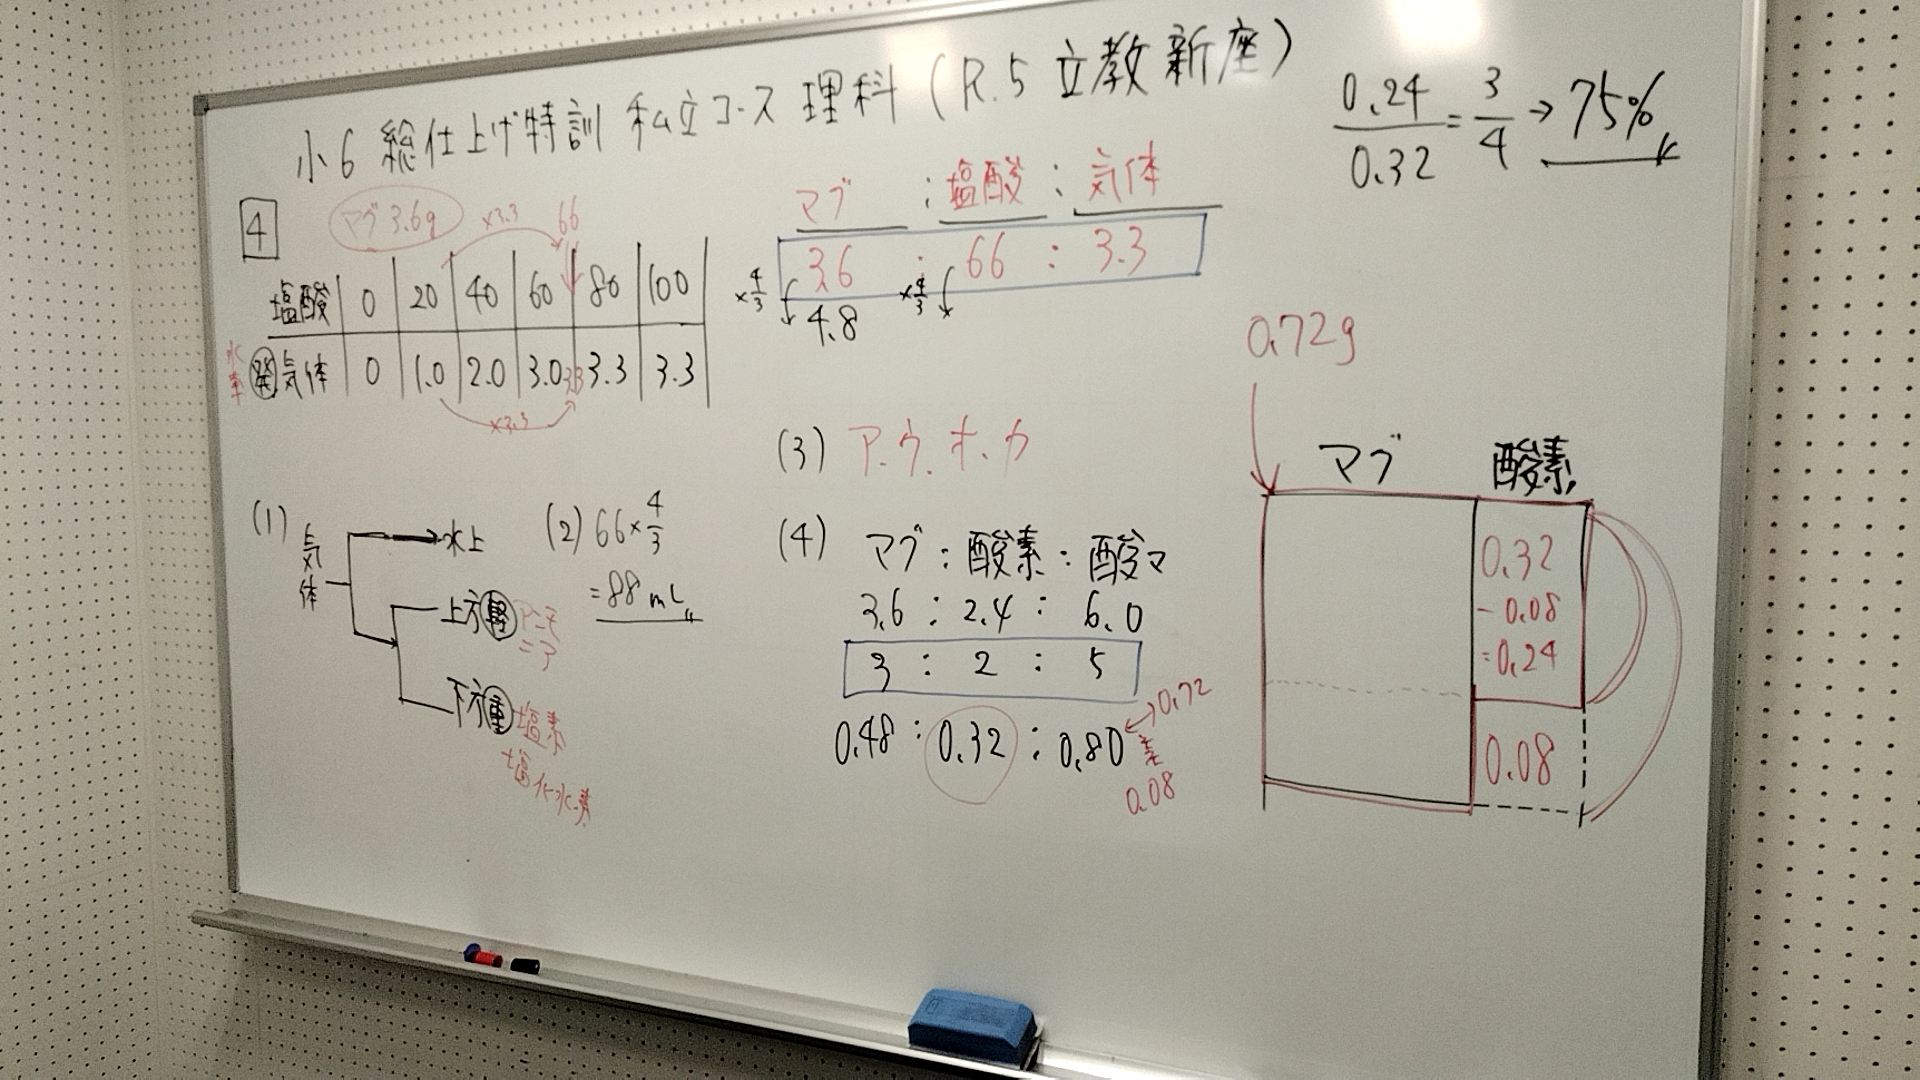 小6 総仕上げ特訓 私立コース 理科 (R.5 立教新座)
0.24/0.32 = 3/4 → 75%
4
マグ 3.6g
×3.3
66
塩酸 0 20 40 60 80 100
水素
発 気体 0 1.0 2.0 3.0 3.3 3.3 3.3
×3.3
マグ : 塩酸 : 気体
3.6 : 66 : 3.3
×4/3 4.8 ×4/3
(1) 気体
水上
上方 軽 アンモニア
下方 重 塩素
塩化水素
(2) 66×4/3
=88mL
(3) ア.ウ.オ.カ
(4) マグ : 酸素 : 酸マ
3.6 : 2.4 : 6.0
3 : 2 : 5
0.48 : 0.32 : 0.80 ↔ 0.72
差
0.08
0.72g
マグ 酸素
0.32
- 0.08
=0.24
0.08